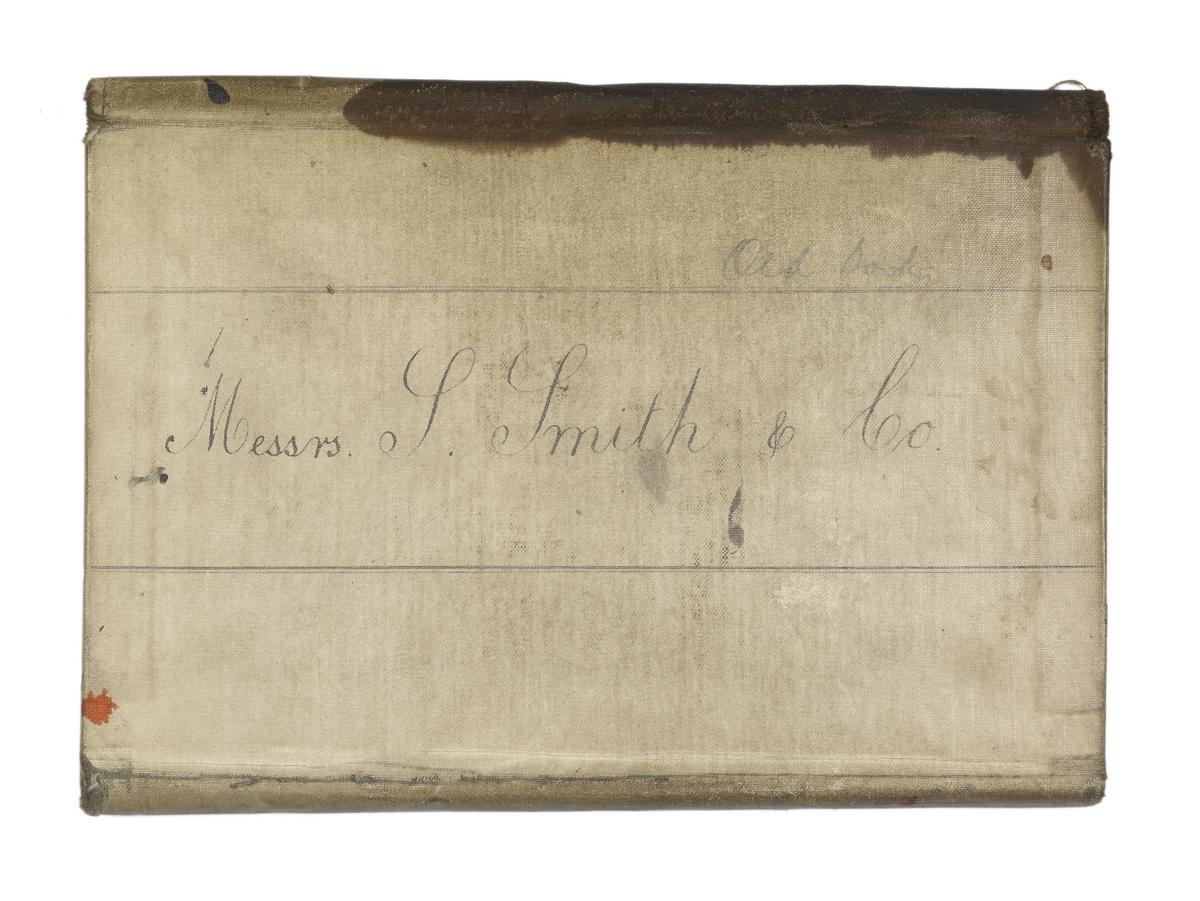 Old book
Messrs. S. Smith & Co.